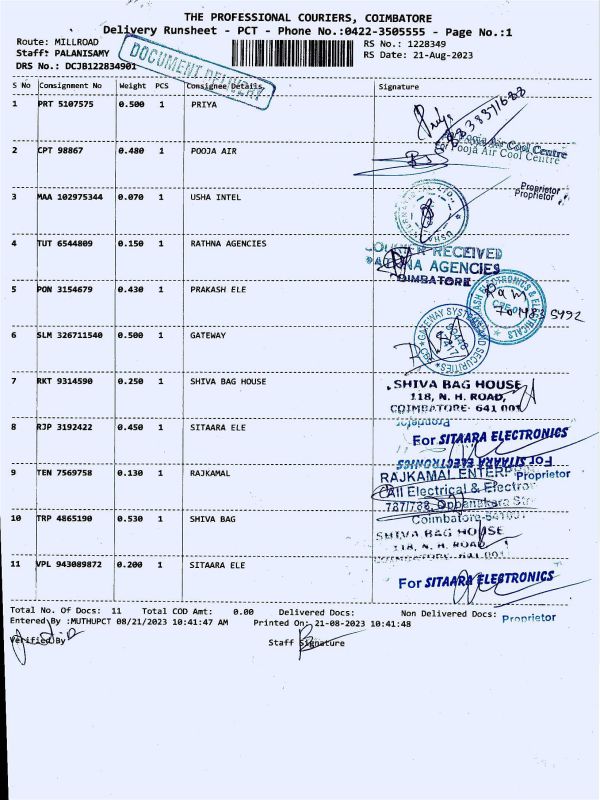 THE PROFESSIONAL COURIERS, COIMBATORE
Delivery Runsheet - PCT - Phone No.:0422-3505555 - Page No.:1
Route: MILLROAD
Staff: PALANISAMY
DRS No.: DCJB122834901
RS No.: 1228349
RS Date: 21-Aug-2023
DOCUMENT DELIVERY
S No Consignment No Weight PCS Consignee Details Signature
1 PRT 5107575 0.500 1 PRIYA
2 CPT 98867 0.480 1 POOJA AIR
Pooja Air Cool Centre
Pooja Air Cool Centre
Proprietor
Proprietor
3 MAA 102975344 0.070 1 USHA INTEL
4 TUT 6544809 0.150 1 RATHNA AGENCIES
COURIER RECEIVED
RATHNA AGENCIES
COIMBATORE
5 PON 3154679 0.430 1 PRAKASH ELE
6 SLM 326711540 0.500 1 GATEWAY
7 RKT 9314590 0.250 1 SHIVA BAG HOUSE
SHIVA BAG HOUSE
118, N. H. ROAD,
COIMBATORE- 641 001
8 RJP 3192422 0.450 1 SITAARA ELE
Proprietor
For SITAARA ELECTRONICS
For SITAARA ELECTRONICS
Proprietor
9 TEN 7569758 0.130 1 RAJKAMAL
RAJKAMAL ENTERP
All Electrical & Electro
787/788, Oppanakara Str
Coimbatore-641001
10 TRP 4865190 0.530 1 SHIVA BAG
SHIVA BAG HOUSE
118, N. H. ROAD,
11 VPL 943089872 0.200 1 SITAARA ELE
For SITAARA ELECTRONICS
Proprietor
Total No. Of Docs: 11 Total COD Amt: 0.00 Delivered Docs: Non Delivered Docs:
Entered By :MUTHUPCT 08/21/2023 10:41:47 AM Printed On: 21-08-2023 10:41:48
Verified By Staff Signature